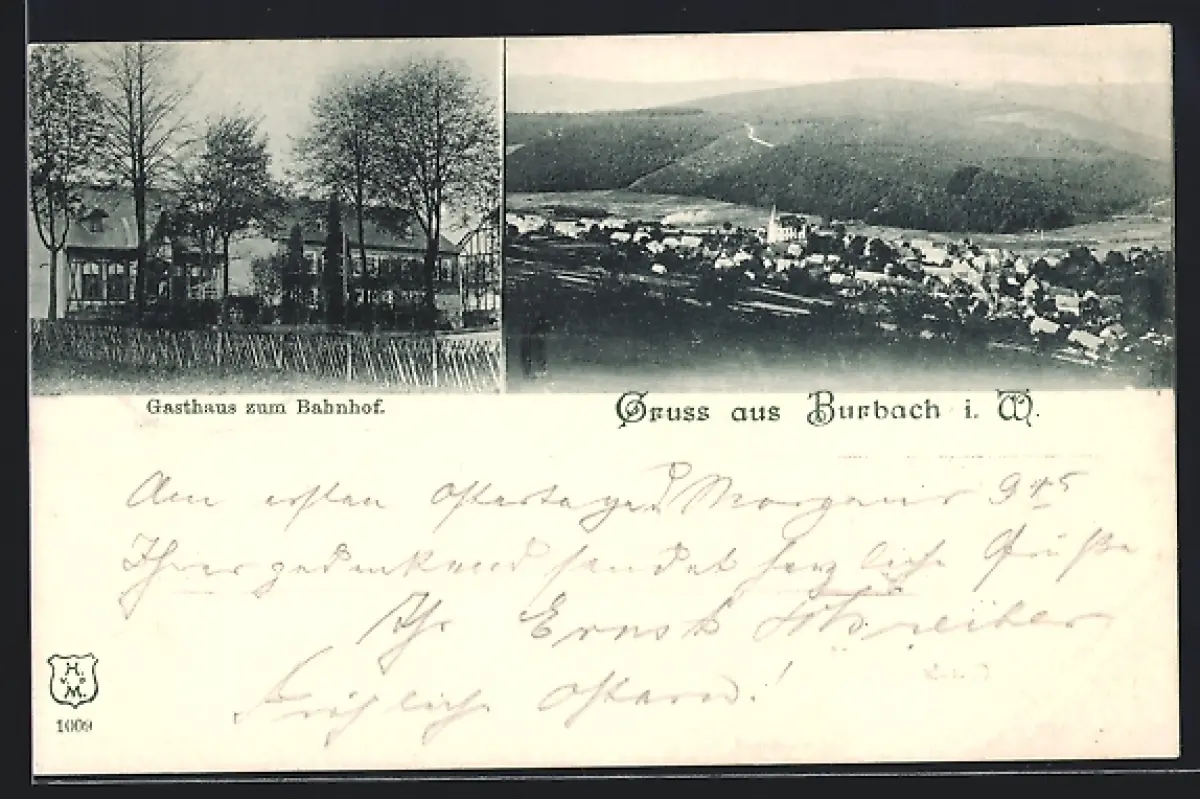 Gasthaus zum Bahnhof.
Gruss aus Burbach i. W.
Am ersten Ostertage Morgens 9 45
Ihrer gedenkend sendet herzliche Grüße
Ihr Ernst Schreiber
Fröhliche Ostern!
H.
v. d
M.
1009